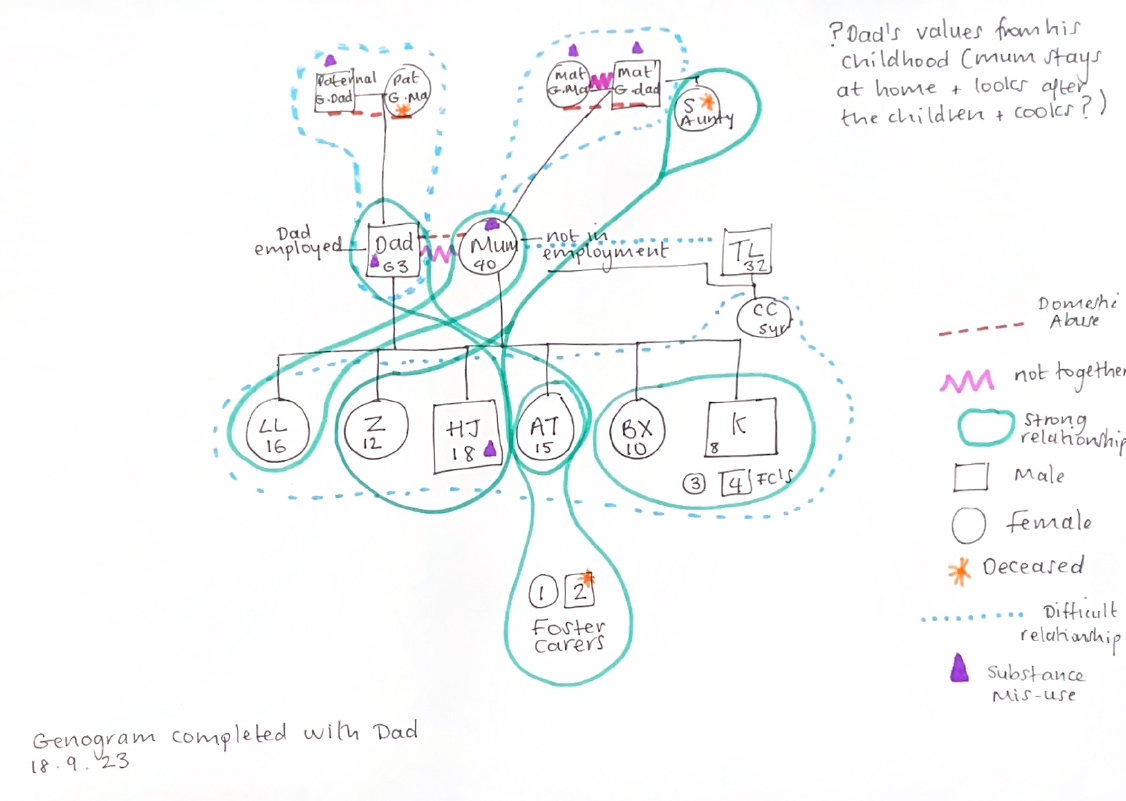 ?Dad's values from his
childhood (mum stays
at home + looks after
the children + cooks?)
Paternal
G.Dad
Pat
G.Ma
Mat
G.Ma
Mat'
G.dad
S
Aunty
Dad
employed
Dad
63
Mum
40
not in
employment
TL
32
CC
5yr
LL
16
Z
12
HJ
18
AT
15
BX
10
K
8
3
4
FCls
1
2
Foster
Carers
Domestic
Abuse
not together
Strong
relationship
Male
Female
Deceased
Difficult
relationship
Substance
Mis-use
Genogram completed with Dad
18.9.'23